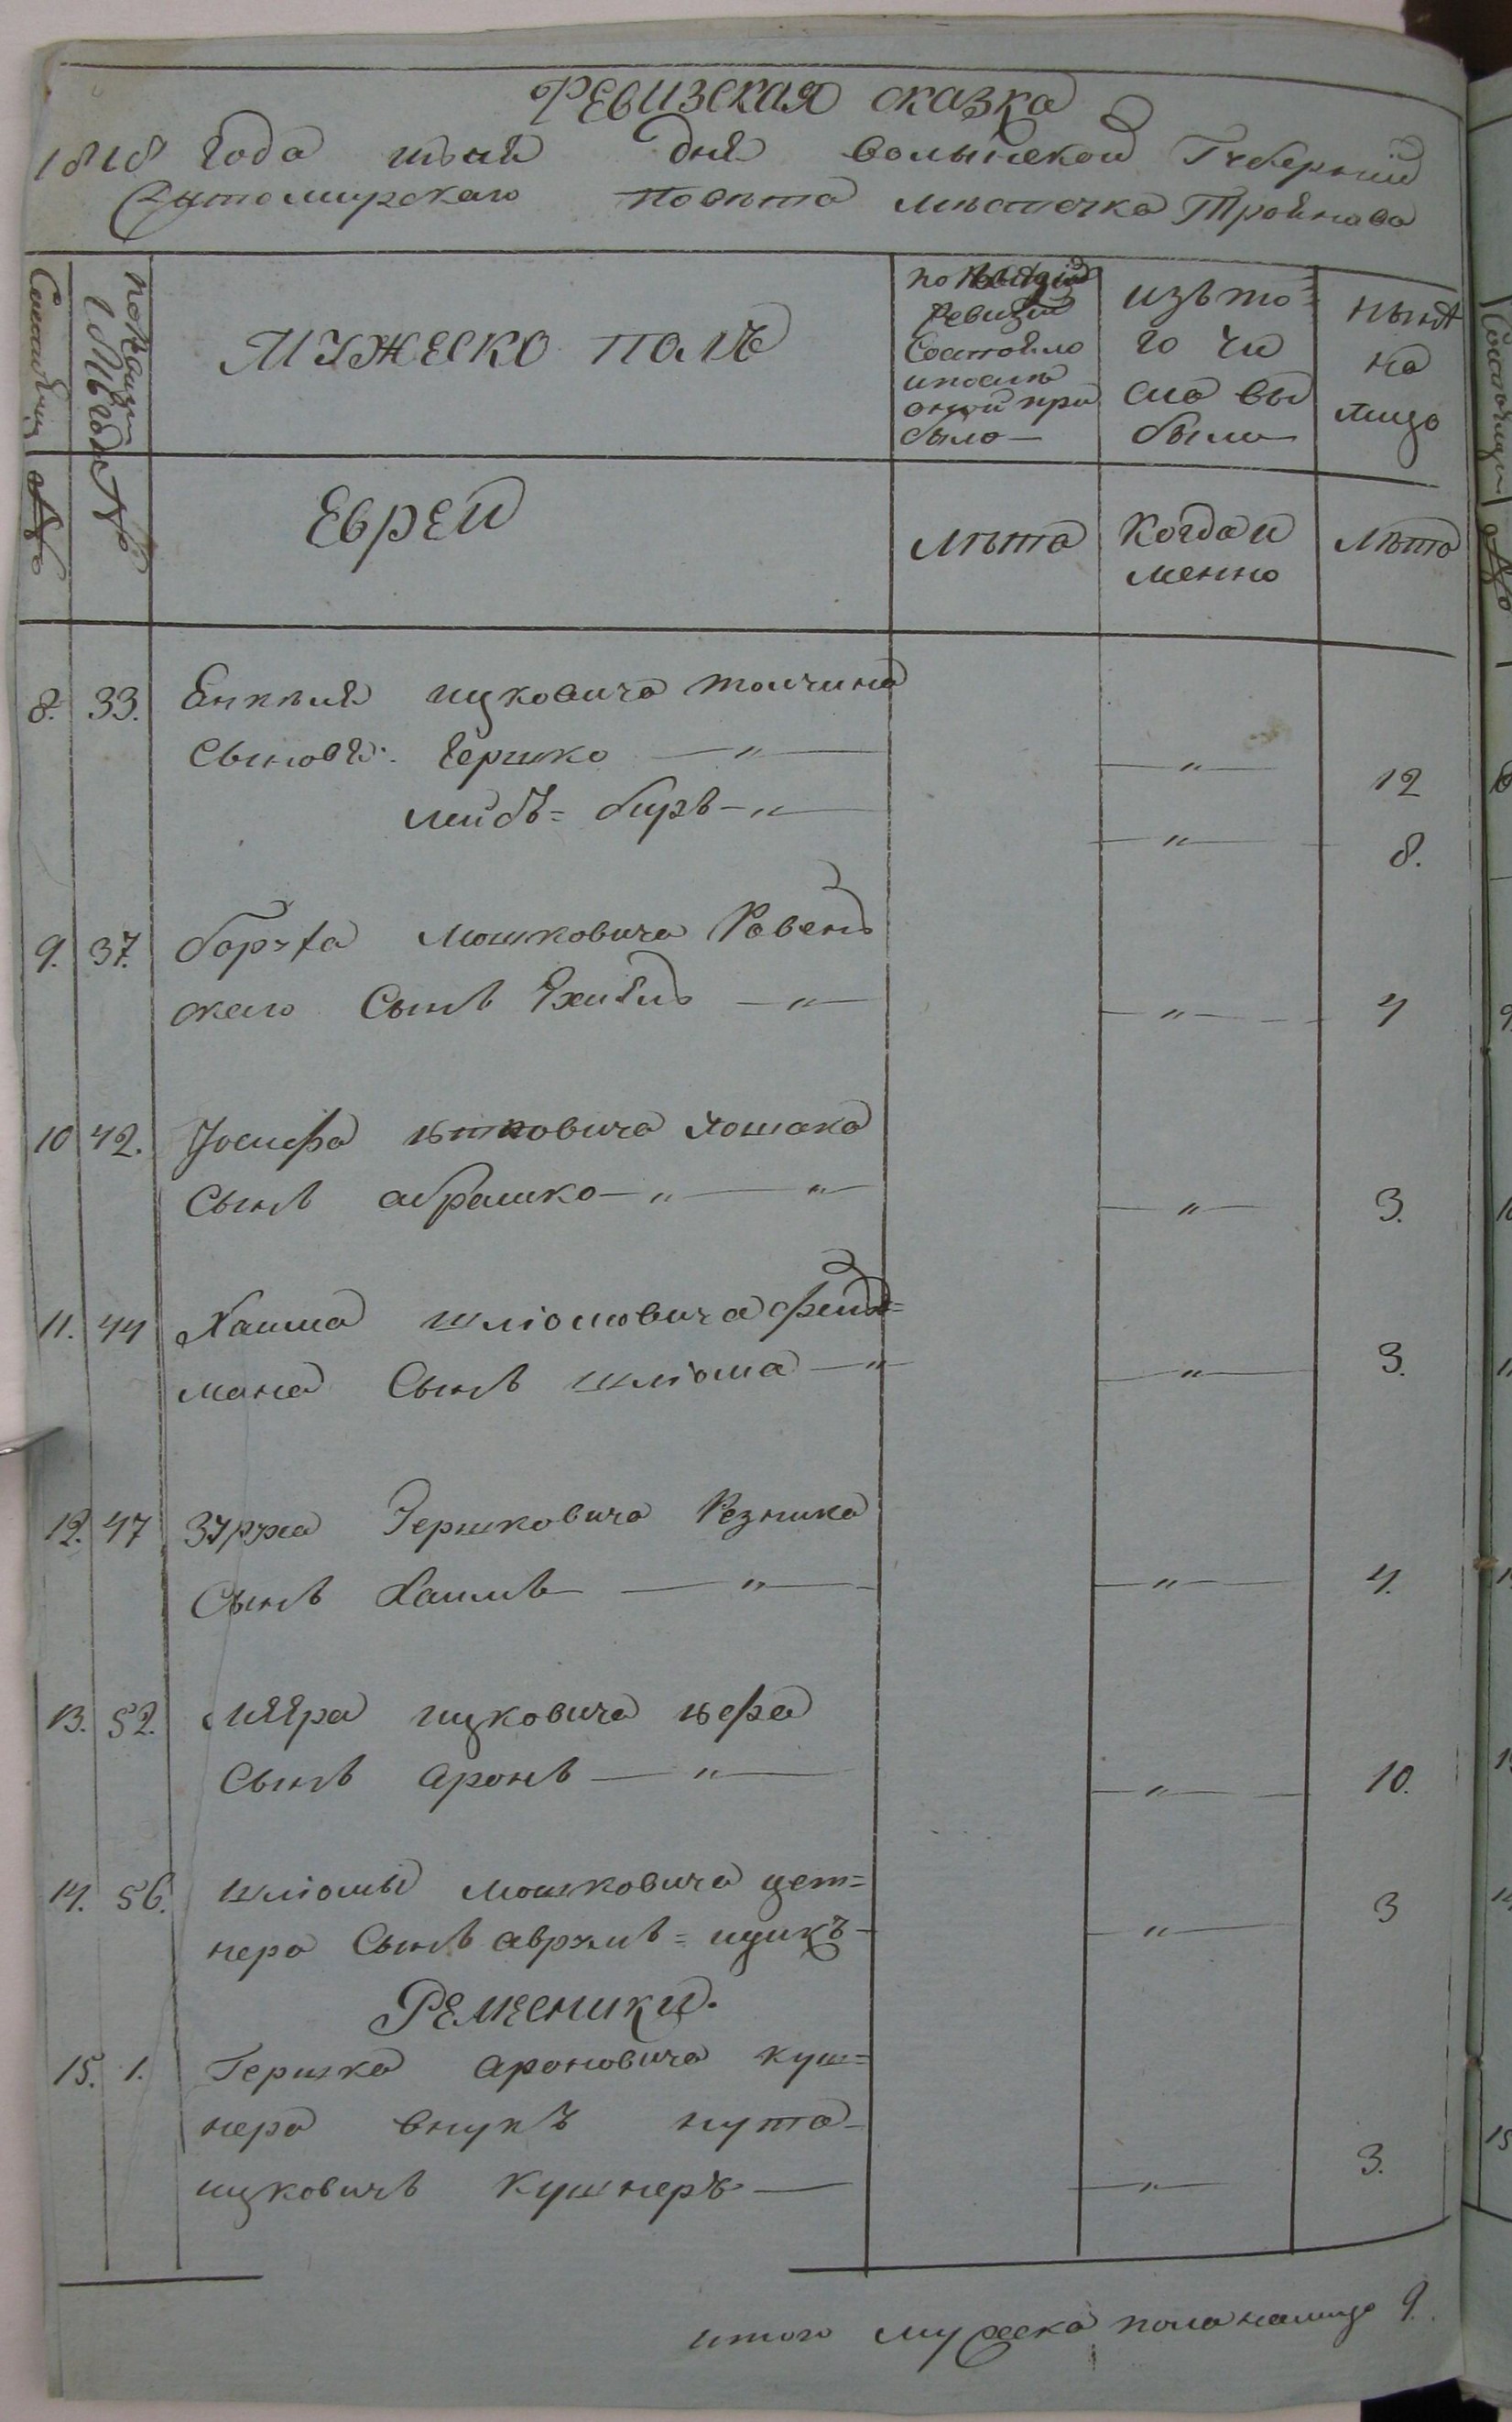 Ревизская сказка
1818 года июня дня волынской Губернии
Житомирскаго повета местечка Троянова
Состоящии №
по Ревизии 1816 года №
Мужеско полъ
по
ревизии
Состояло
и после
оной при
было
изъ то=
го чи
сла вы
были
ныне
на
лицо
Евреи
лета
когда и
менно
лета
8. 33. ицковича толчина
Сыновя: Гершко — " — — " — 12
лейбъ= беръ — " — — " — 8.
9. 37. боруха мошковича Ровен
скаго Сынъ — " — — " — 4
10 42. Иосифа
Сынъ абрамко — " — " — — " — 3.
11. 44 Хаима шлiомовича фелд=
мана Сынъ шлiома — " — " — 3.
12. 47 Гершковича Резника
Сынъ Хаимъ — " — — " — 4.
13. 52. меяра ицковича
Сынъ аронъ — " — — " — 10.
14. 56. шлiомы мошковича цет=
нера Сынъ аврумъ = ицикъ — — " — 3
Ремесники.
15. 1. Гершка ароновича куш=
нера внукъ нута
ицковичъ кушнеръ — — " — 3.
итого мужеска пола налицо 9.